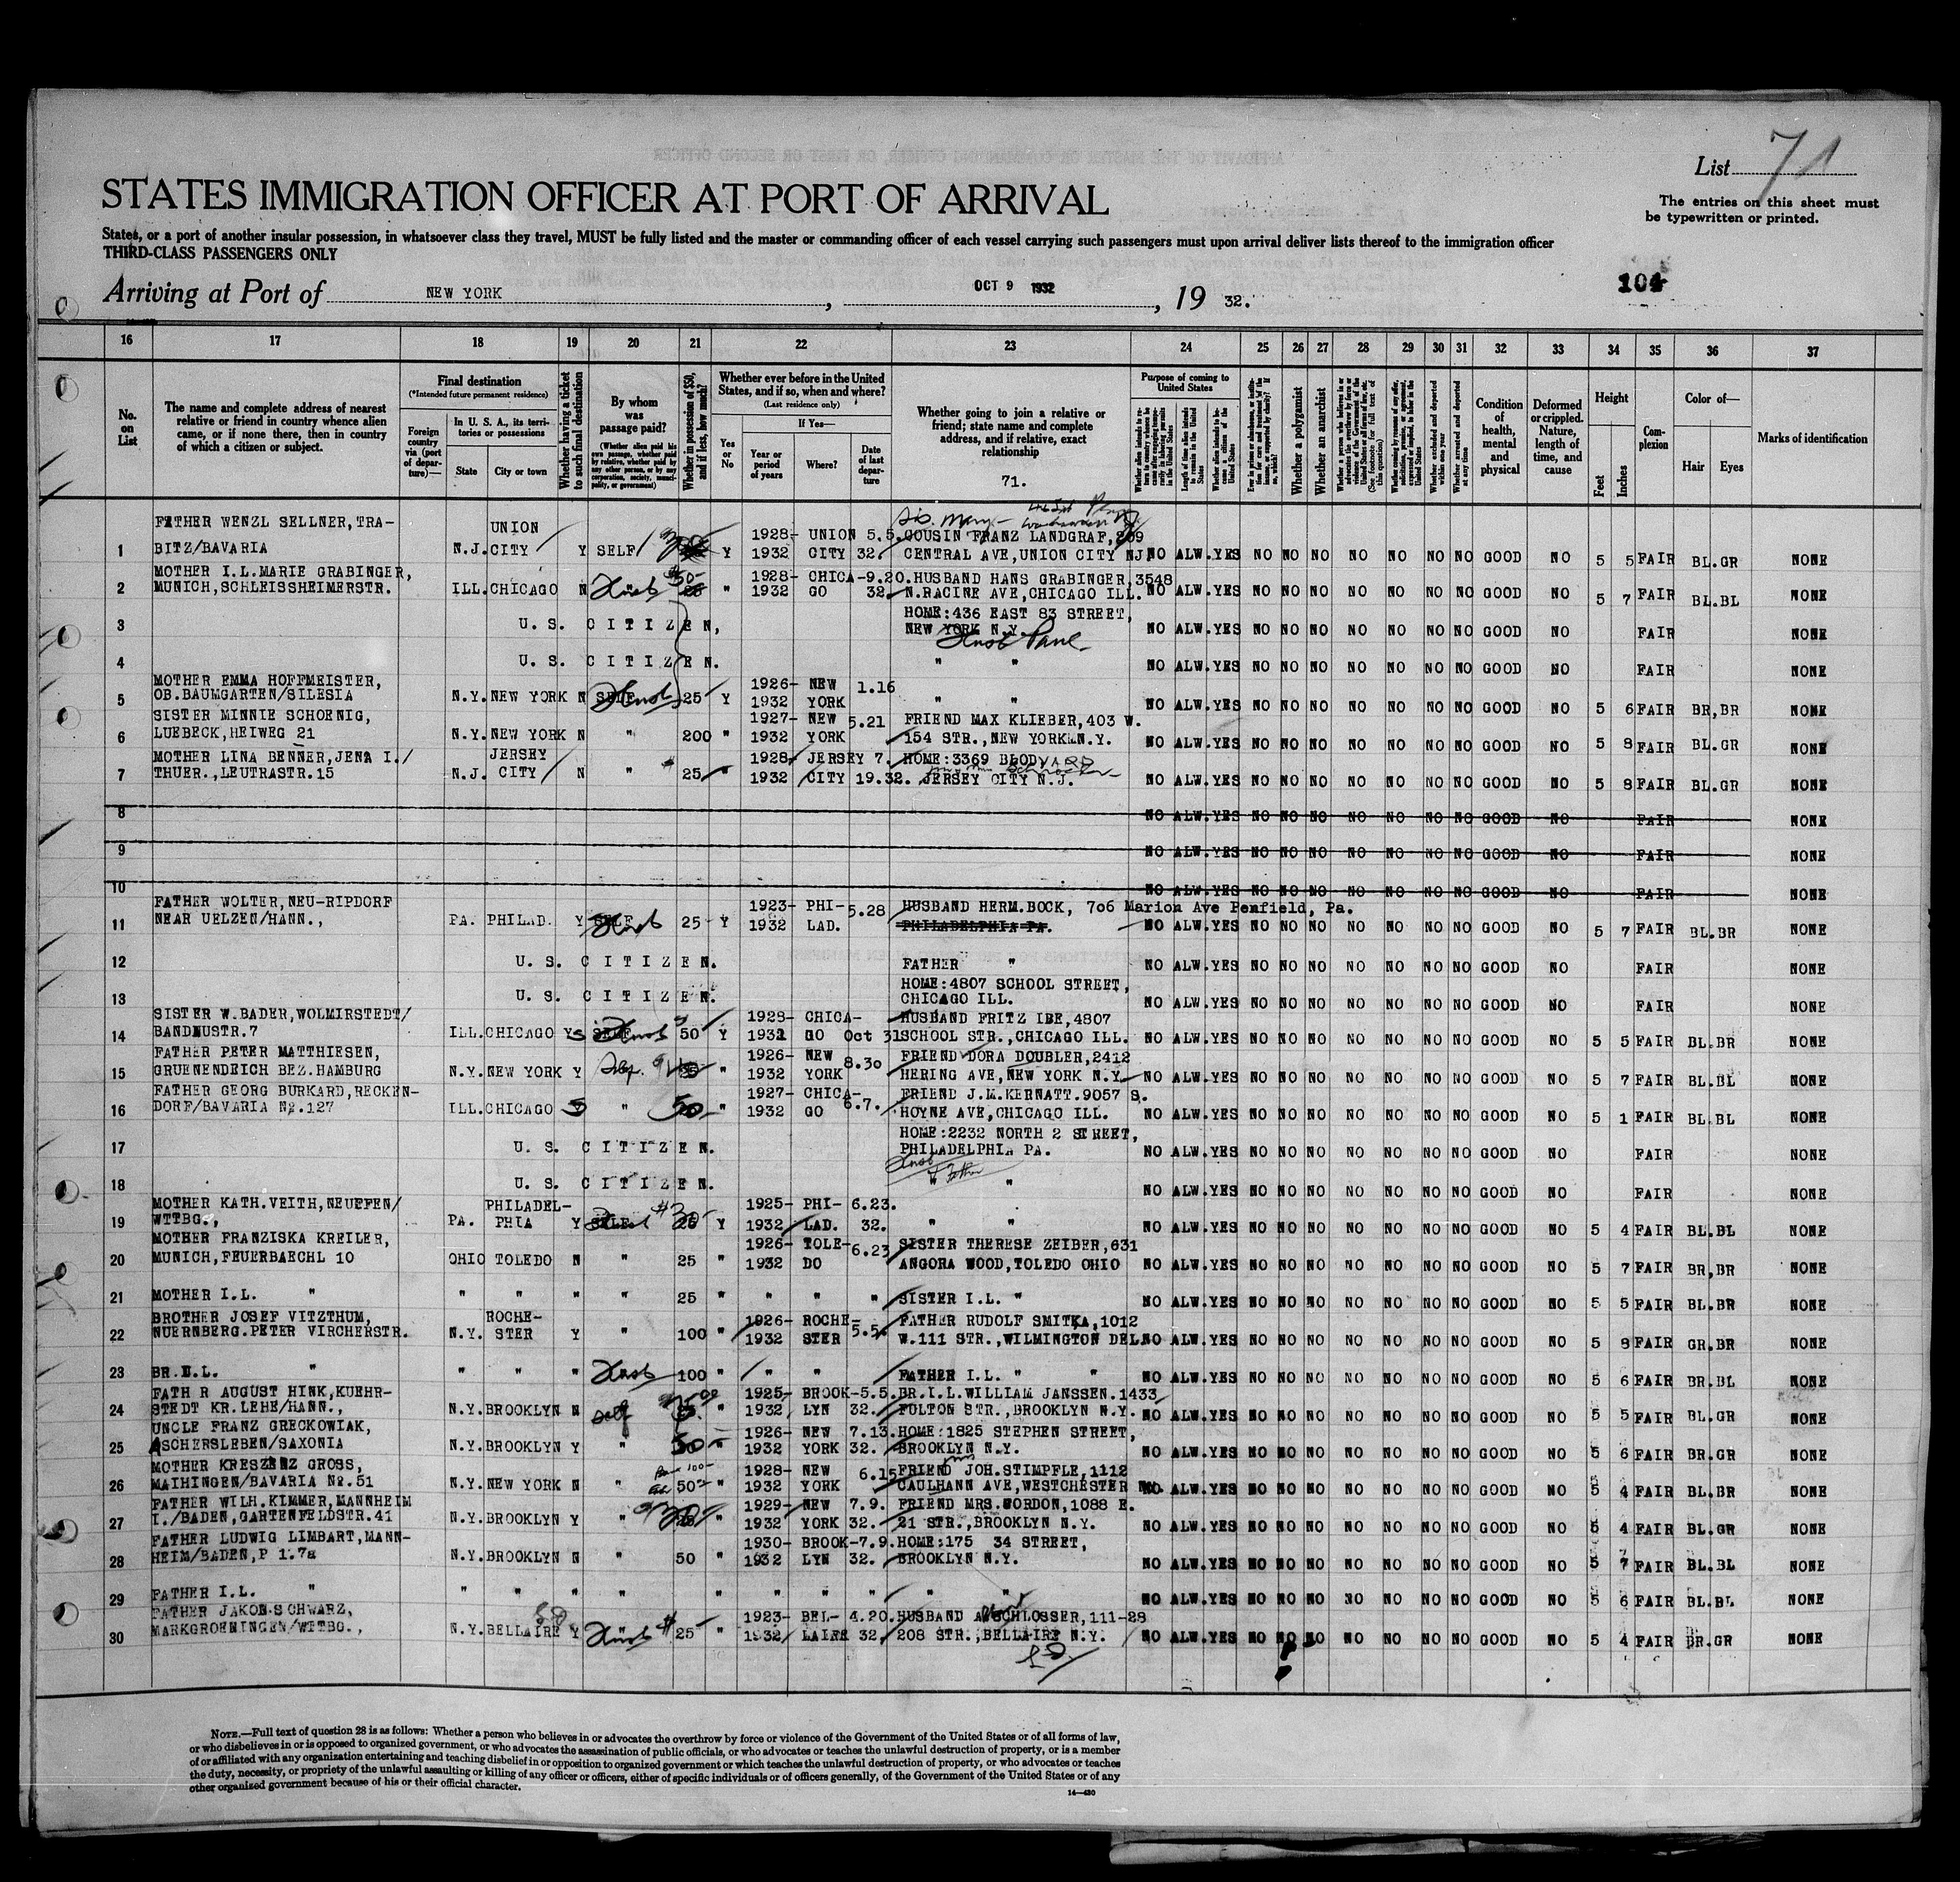 List 71
STATES IMMIGRATION OFFICER AT PORT OF ARRIVAL
The entries on this sheet must
be typewritten or printed.
States, or a port of another insular possession, in whatsoever class they travel, MUST be fully listed and the master or commanding officer of each vessel carrying such passengers must upon arrival deliver lists thereof to the immigration officer
THIRD-CLASS PASSENGERS ONLY
104
Arriving at Port of NEW YORK, OCT 9 1932, 19 32.
16 17 18 19 20 21 22 23 24 25 26 27 28 29 30 31 32 33 34 35 36 37
No. on List
The name and complete address of nearest relative or friend in country whence alien came, or if none there, then in country of which a citizen or subject.
Final destination
(*Intended future permanent residence)
Foreign country via (port of departure)—
In U. S. A., its territories or possessions
State
City or town
Whether having a ticket to such final destination
By whom was passage paid?
(Whether alien paid his own passage, whether paid by relative, whether paid by any other person, or by any corporation, society, municipality, or government)
Whether in possession of $50, and if less, how much?
Whether ever before in the United States, and if so, when and where?
(Last residence only)
Yes or No
If Yes—
Year or period of years
Where?
Date of last departure
Whether going to join a relative or friend; state name and complete address, and if relative, exact relationship
71.
Purpose of coming to United States
Length of time alien intends to remain in the United States
Whether alien intends to become a citizen of the United States
Whether a polygamist
Whether an anarchist
Whether excluded and deported within one year
Whether arrested and deported at any time
Condition of health, mental and physical
Deformed or crippled. Nature, length of time, and cause
Height
Feet
Inches
Complexion
Color of—
Hair
Eyes
Marks of identification
FATHER WENZL SELLNER, TRA- UNION 1928- UNION 5.5. COUSIN FRANZ LANDGRAF, 209
1 BITZ/BAVARIA N.J. CITY Y SELF Y 1932 CITY 32. CENTRAL AVE, UNION CITY NJ. NO ALW. YES NO NO NO NO NO NO NO GOOD NO 5 5 FAIR BL.GR NONE
MOTHER I.L.MARIE GRABINGER, 1928- CHICA- 9.20. HUSBAND HANS GRABINGER, 3548
2 MUNICH, SCHLEISSHEIMERSTR. ILL. CHICAGO N 50 " 1932 GO 32. N.RACINE AVE, CHICAGO ILL. NO ALW. YES NO NO NO NO NO NO NO GOOD NO 5 7 FAIR BL.BL NONE
HOME:436 EAST 83 STREET,
3 U. S. CITIZEN, NEW YORK N.Y. NO ALW. YES NO NO NO NO NO NO NO GOOD NO FAIR NONE
4 U. S. CITIZEN. " " NO ALW. YES NO NO NO NO NO NO NO GOOD NO FAIR NONE
MOTHER EMMA HOFFMEISTER, 1926- NEW 1.16
5 OB.BAUMGARTEN/SILESIA N.Y. NEW YORK N SELF 25 Y 1932 YORK " " NO ALW. YES NO NO NO NO NO NO NO GOOD NO 5 6 FAIR BR,BR NONE
SISTER MINNIE SCHOENIG, 1927- NEW 5.21 FRIEND MAX KLIEBER, 403 W.
6 LUEBECK, HEIWEG 21 N.Y. NEW YORK N " 200 " 1932 YORK 154 STR., NEW YORK N.Y. NO ALW. YES NO NO NO NO NO NO NO GOOD NO 5 8 FAIR BL.GR NONE
MOTHER LINA BENNER, JENA I./ JERSEY 1928 JERSEY 7. HOME:3369 BLODVARD
7 THUER., LEUTRASTR.15 N.J. CITY N " 25 " 1932 CITY 19.32. JERSEY CITY N.J. NO ALW. YES NO NO NO NO NO NO NO GOOD NO 5 8 FAIR BL.GR NONE
8 NO ALW. YES NO NO NO NO NO NO NO GOOD NO FAIR NONE
9 NO ALW. YES NO NO NO NO NO NO NO GOOD NO FAIR NONE
10 NO ALW. YES NO NO NO NO NO NO NO GOOD NO FAIR NONE
FATHER WOLTER, NEU-RIPDORF 1923- PHI- 5.28 HUSBAND HERM.BOCK, 706 Marion Ave Penfield, Pa.
11 NEAR UELZEN/HANN., PA. PHILAD. Y SELF 25 Y 1932 LAD. PHILADELPHIA PA. NO ALW. YES NO NO NO NO NO NO NO GOOD NO 5 7 FAIR BL.BR NONE
12 U. S. CITIZEN. FATHER " NO ALW. YES NO NO NO NO NO NO NO GOOD NO FAIR NONE
HOME:4807 SCHOOL STREET,
13 U. S. CITIZEN. CHICAGO ILL. NO ALW. YES NO NO NO NO NO NO NO GOOD NO FAIR NONE
SISTER W.BADER, WOLMIRSTEDT/ 1928- CHICA- HUSBAND FRITZ IBE, 4807
14 ILL. CHICAGO SELF 50 Y 1932 GO Oct 31 SCHOOL STR., CHICAGO ILL. NO ALW. YES NO NO NO NO NO NO NO GOOD NO 5 5 FAIR BL.BR NONE
FATHER PETER MATTHIESEN, 1926- NEW 8.30 FRIEND DORA DOUBLER, 2412
15 GRUENENDEICH BEZ.HAMBURG N.Y. NEW YORK Y Self " 1932 YORK HERING AVE, NEW YORK N.Y. NO ALW. YES NO NO NO NO NO NO NO GOOD NO 5 7 FAIR BL.BL NONE
FATHER GEORG BURKARD, RECKEN- 1927- CHICA- 6.7. FRIEND J.M.KERNATT. 9057 S.
16 DORF/BAVARIA No.127 ILL. CHICAGO " 50 " 1932 GO HOYNE AVE, CHICAGO ILL. NO ALW. YES NO NO NO NO NO NO NO GOOD NO 5 1 FAIR BL.BL NONE
HOME:2232 NORTH 2 STREET,
17 U. S. CITIZEN. PHILADELPHIA PA. NO ALW. YES NO NO NO NO NO NO NO GOOD NO FAIR NONE
18 U. S. CITIZEN. " " NO ALW. YES NO NO NO NO NO NO NO GOOD NO FAIR NONE
MOTHER KATH.VEITH, NEUFFEN/ PHILADEL- 1925- PHI- 6.23.
19 WTTBG., PA. PHIA Y SELF $30 Y 1932 LAD. 32. " " NO ALW. YES NO NO NO NO NO NO NO GOOD NO 5 4 FAIR BL.BL NONE
MOTHER FRANZISKA KREILER, 1926- TOLE- 6.23 SISTER THERESE ZEIBER, 631
20 MUNICH, FEUERBAECHL 10 OHIO TOLEDO N " 25 " 1932 DO ANGORA WOOD, TOLEDO OHIO NO ALW. YES NO NO NO NO NO NO NO GOOD NO 5 7 FAIR BR,BR NONE
21 MOTHER I.L. " " " " " 25 " " " " SISTER I.L. " NO ALW. YES NO NO NO NO NO NO NO GOOD NO 5 5 FAIR BL.BR NONE
BROTHER JOSEF VITZTHUM, ROCHE- 1926- ROCHE- 5.5. FATHER RUDOLF SMITKA, 1012
22 NUERNBERG.PETER VIRCHERSTR. N.Y. STER Y " 100 " 1932 STER W.111 STR., WILMINGTON DEL. NO ALW. YES NO NO NO NO NO NO NO GOOD NO 5 8 FAIR GR.BR NONE
23 " " " " 100 " " " FATHER I.L. " " NO ALW. YES NO NO NO NO NO NO NO GOOD NO 5 6 FAIR BR.BL NONE
FATH R AUGUST HINK, KUEHR- 1925- BROOK- 5.5. BR.I.L.WILLIAM JANSSEN. 1433
24 STEDT KR.LEHE/HANN., N.Y. BROOKLYN N Self " 1932 LYN 32. FULTON STR., BROOKLYN N.Y. NO ALW. YES NO NO NO NO NO NO NO GOOD NO 5 5 FAIR BL.GR NONE
UNCLE FRANZ GRECKOWIAK, 1926- NEW 7.13. HOME:1825 STEPHEN STREET,
25 ASCHERSLEBEN/SAXONIA N.Y. BROOKLYN Y " 50 " 1932 YORK 32. BROOKLYN N.Y. NO ALW. YES NO NO NO NO NO NO NO GOOD NO 5 6 FAIR BR.GR NONE
MOTHER KRESZENZ GROSS, 1928- NEW 6.15 FRIEND JOH.STIMPFLE, 1112
26 MAIHINGEN/BAVARIA No.51 N.Y. NEW YORK N " 50 " 1932 YORK CAULHANN AVE, WESTCHESTER NO ALW. YES NO NO NO NO NO NO NO GOOD NO 5 4 FAIR BL.BR NONE
FATHER WILH.KIMMER, MANNHEIM 1929- NEW 7.9. FRIEND MRS.WORDON, 1088 E.
27 I./BADEN, GARTENFELDSTR.41 N.Y. BROOKLYN Y " " 1932 YORK 32. 21 STR., BROOKLYN N.Y. NO ALW. YES NO NO NO NO NO NO NO GOOD NO 5 4 FAIR BL.GR NONE
FATHER LUDWIG LIMBART, MANN- 1930- BROOK- 7.9. HOME:175 34 STREET,
28 HEIM/BADEN, P 1.7a N.Y. BROOKLYN N " 50 " 1932 LYN 32. BROOKLYN N.Y. NO ALW. YES NO NO NO NO NO NO NO GOOD NO 5 7 FAIR BL.BL NONE
29 FATHER I.L. " " " " " " " " " " " NO ALW. YES NO NO NO NO NO NO NO GOOD NO 5 6 FAIR BL.BL NONE
FATHER JAKOB SCHWARZ, 1923- BEL- 4.20. HUSBAND A. SCHLOSSER, 111-28
30 MARKGROENINGEN/WTTBG., N.Y. BELLAIRE Y $25 " 1932 LAIRE 32. 208 STR., BELLAIRE N.Y. NO ALW. YES NO NO NO NO NO NO NO GOOD NO 5 4 FAIR BR.GR NONE
NOTE.—Full text of question 28 is as follows: Whether a person who believes in or advocates the overthrow by force or violence of the Government of the United States or of all forms of law,
or who disbelieves in or is opposed to organized government, or who advocates the assassination of public officials, or who advocates or teaches the unlawful destruction of property, or is a member
of or affiliated with any organization entertaining and teaching disbelief in or opposition to organized government or which teaches the unlawful destruction of property, or who advocates or teaches
the duty, necessity, or propriety of the unlawful assaulting or killing of any officer or officers, either of specific individuals or of officers generally, of the Government of the United States or of any
other organized government because of his or their official character.
14—430